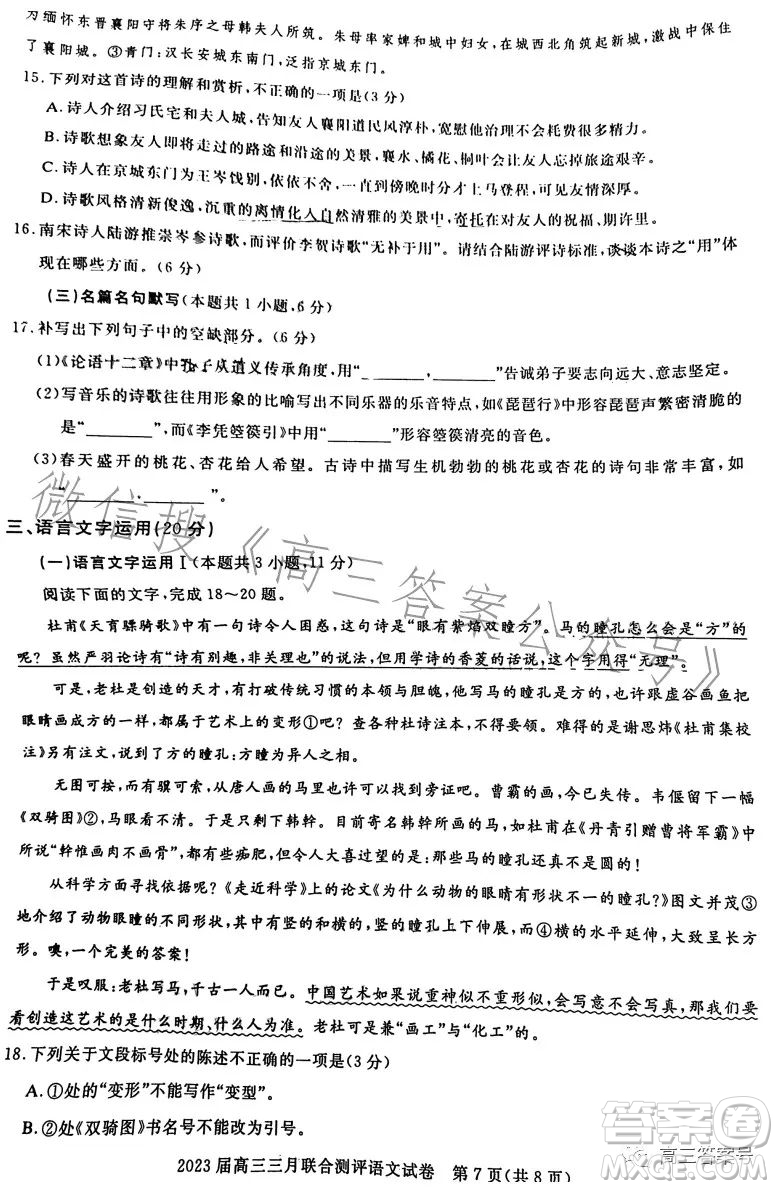 为缅怀东晋襄阳守将朱序之母韩夫人所筑。朱母率家婢和城中妇女，在城西北角筑起新城，激战中保住
了襄阳城。③青门：汉长安城东南门，泛指京城东门。
15.下列对这首诗的理解和赏析，不正确的一项是(3分)
A.诗人介绍习氏宅和夫人城，告知友人襄阳道民风淳朴，宽慰他治理不会耗费很多精力。
B.诗歌想象友人即将走过的路途和沿途的美景，襄水、橘花、桐叶会让友人忘掉旅途艰辛。
C.诗人在京城东门为王岑饯别，依依不舍，一直到傍晚时分才上马登程，可见友情深厚。
D.诗歌风格清新俊逸，沉重的离情化入自然清雅的美景中，寄托在对友人的祝福、期许里。
16.南宋诗人陆游推崇岑参诗歌，而评价李贺诗歌“无补于用”。请结合陆游评诗标准，谈谈本诗之“用”体
现在哪些方面。(6分)
(三)名篇名句默写(本题共1小题，6分)
17.补写出下列句子中的空缺部分。(6分)
(1)《论语十二章》中孔子从道义传承角度，用“________，________”告诫弟子要志向远大、意志坚定。
(2)写音乐的诗歌往往用形象的比喻写出不同乐器的乐音特点，如《琵琶行》中形容琵琶声繁密清脆的
是“________”，而《李凭箜篌引》中用“________”形容箜篌清亮的音色。
(3)春天盛开的桃花、杏花给人希望。古诗中描写生机勃勃的桃花或杏花的诗句非常丰富，如
“________，________”。
三、语言文字运用(20分)
(一)语言文字运用Ⅰ(本题共3小题，11分)
阅读下面的文字，完成18～20题。
杜甫《天育骠骑歌》中有一句诗令人困惑，这句诗是“眼有紫焰双瞳方”。马的瞳孔怎么会是“方”的
呢？虽然严羽论诗有“诗有别趣，非关理也”的说法，但用学诗的香菱的话说，这个字用得“无理”。
可是，老杜是创造的天才，有打破传统习惯的本领与胆魄，他写马的瞳孔是方的，也许跟虚谷画鱼把
眼睛画成方的一样，都属于艺术上的变形①吧？查各种杜诗注本，不得要领。难得的是谢思炜《杜甫集校
注》另有注文，说到了方的瞳孔：方瞳为异人之相。
无图可按，而有骥可索，从唐人画的马里也许可以找到旁证吧。曹霸的画，今已无存。韦偃留下一幅
《双骑图》②，马眼看不清。于是只剩下韩幹。目前寄名韩幹所画的马，多如杜甫在《丹青引赠曹将军霸》中
所说“幹惟画肉不画骨”，都有些痴肥，但令人大喜过望的是：那些马的瞳孔还真不是圆的！
从科学方面寻找依据呢？《走近科学》上的论文《为什么动物的眼睛有形状不一的瞳孔？》图文并茂③
地介绍了动物眼瞳的不同形状，其中有竖的和横的，竖的上下伸展，而④横的水平延伸，大致呈长方
形。噢，一个完美的答案！
于是叹服：老杜写马，千古一人而已。中国艺术如果只说重神似不重形似，会写意不会写真，那我们要
看创造这艺术的是什么时期、什么人为准。老杜可是兼“画工”与“化工”的。
18.下列关于文段标号处的陈述不正确的一项是(3分)
A.①处的“变形”不能写作“变型”。
B.②处《双骑图》书名号不能改为引号。
2023届高三三月联合测评语文试卷 第7页(共8页)
微信搜《高三答案公众号》
答案圈
高三答案号